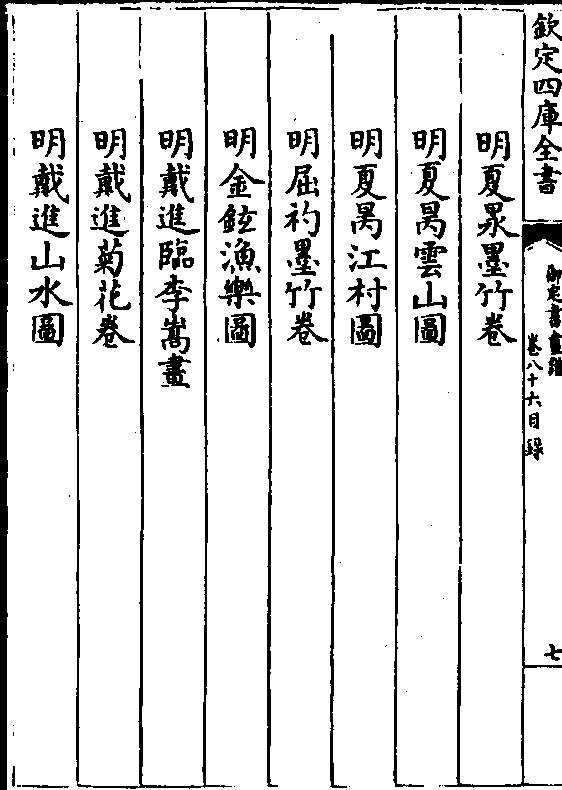 欽定四庫全書
御定書畫譜
卷八十六目錄
七
明夏㫤墨竹卷
明夏昺雲山圖
明夏昺江村圖
明屈礿墨竹卷
明金鉉漁樂圖
明戴進臨李嵩畫
明戴進菊花卷
明戴進山水圖